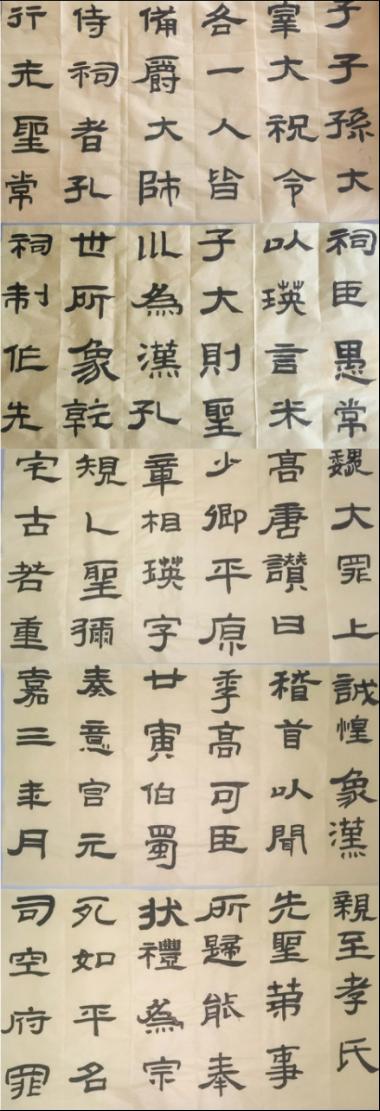 子子孫大
宰大祝令
各一人皆
備爵大師
侍祠者孔
行先聖常
祠臣愚常
以瑛言米
子大則聖
以為漢孔
世所象乾
祠制作先
魏大罪上
高唐讚曰
少卿平原
章相瑛字
規乙聖彌
宅古若重
誠惶象漢
稽首以聞
季高可臣
廿寅伯蜀
奏意宮元
嘉三年月
親至孝氏
先聖弟事
所歸能奉
狀禮為宗
死如平名
司空府罪